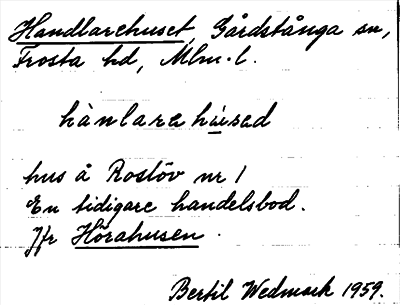 Handlarehuset, Gårdstånga sn,
Frosta hd, Mlm. l.
hànlarehúsed
hus å Rostöv nr 1
En tidigare handelsbod.
Jfr Hörahusen.
Bertil Wedmark 1959.